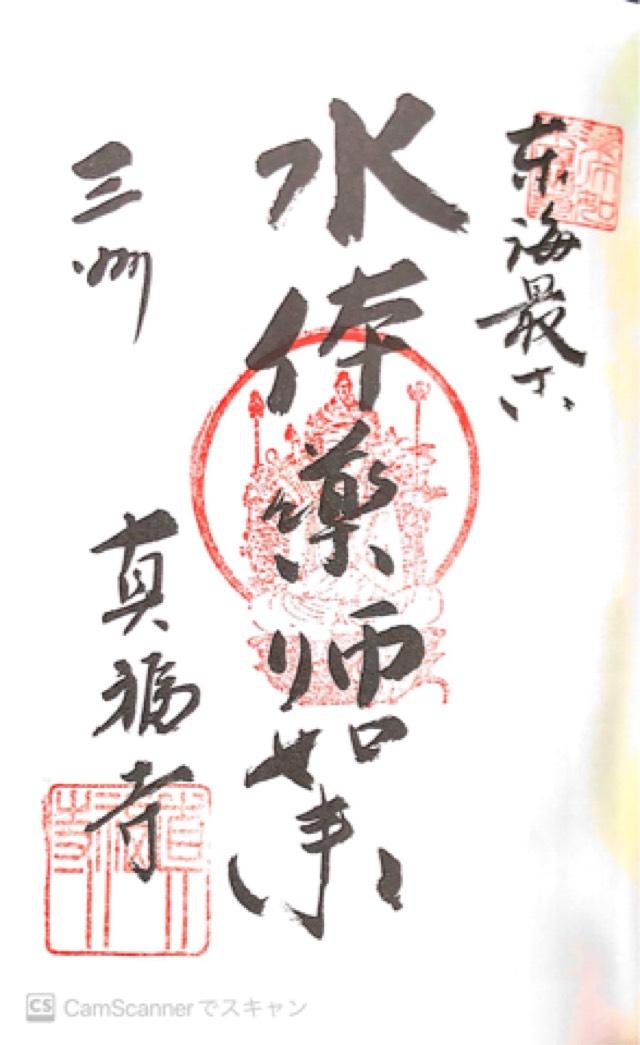 東海最古
水体薬師如来
三州
真福寺
CS CamScannerでスキャン